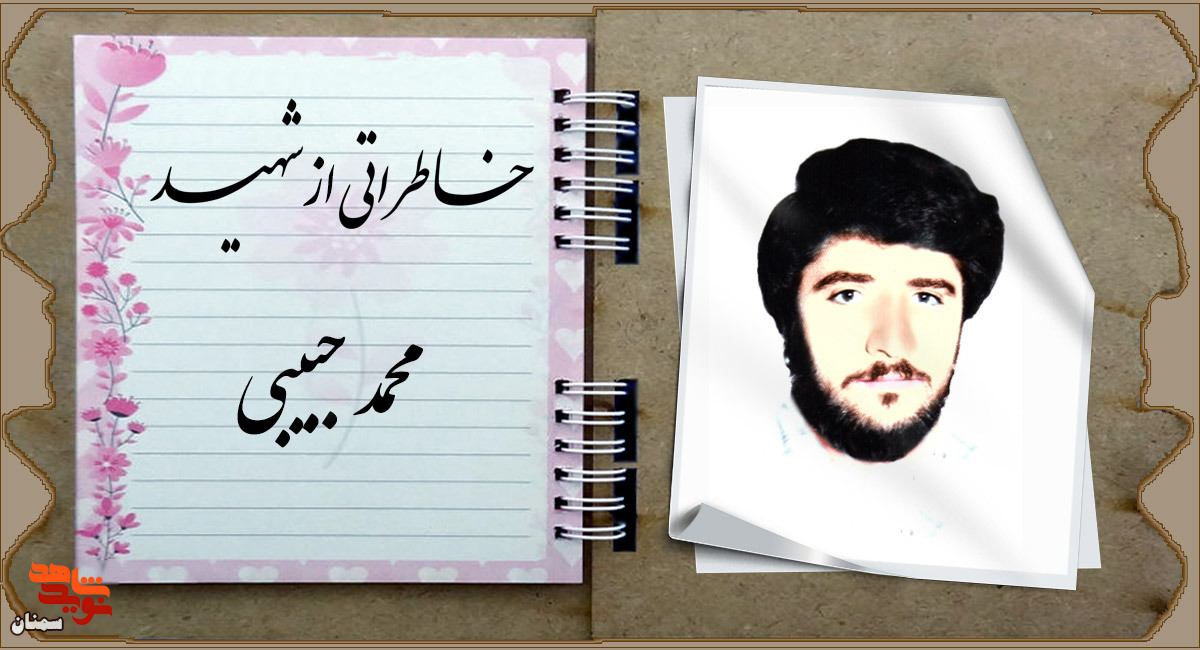 خاطراتی از شهید
محمد حبیبی
نوید شاهد
سمنان